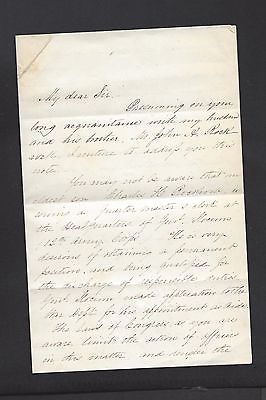 My dear Sir.
Presuming on your
long acquaintance with my husband
and his brother, Mr John A. Rock-
well, I venture to address you this
note.
You may not be aware that my
oldest son Charles H. Rockwell is
serving as quarter master's clerk at
the Head quarters of Genl. Slocum
12th Army Corps. He is very
desirous of obtaining a permanent
position, and being qualified for
the discharge of responsible duties
Genl. Slocum made application to the
War Dept for his appointment as Aide.
The laws of Congress as you are
aware limit the action of officers
in this matter and render the